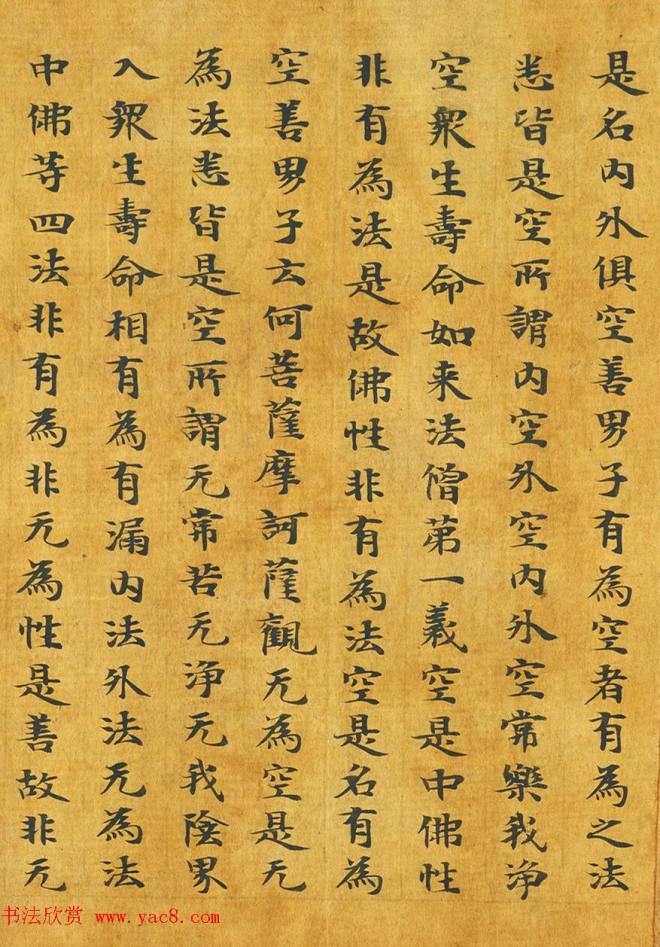 是名内外俱空善男子有為空者有為之法
悉皆是空所謂内空外空内外空常樂我净
空衆生壽命如来法僧第一義空是中佛性
非有為法是故佛性非有為法空是名有為
空善男子云何菩薩摩訶薩觀无為空是无
為法悉皆是空所謂无常苦无净无我陰界
入衆生壽命相有為有漏内法外法无為法
中佛等四法非有為非无為性是善故非无
书法欣赏 www.yac8.com